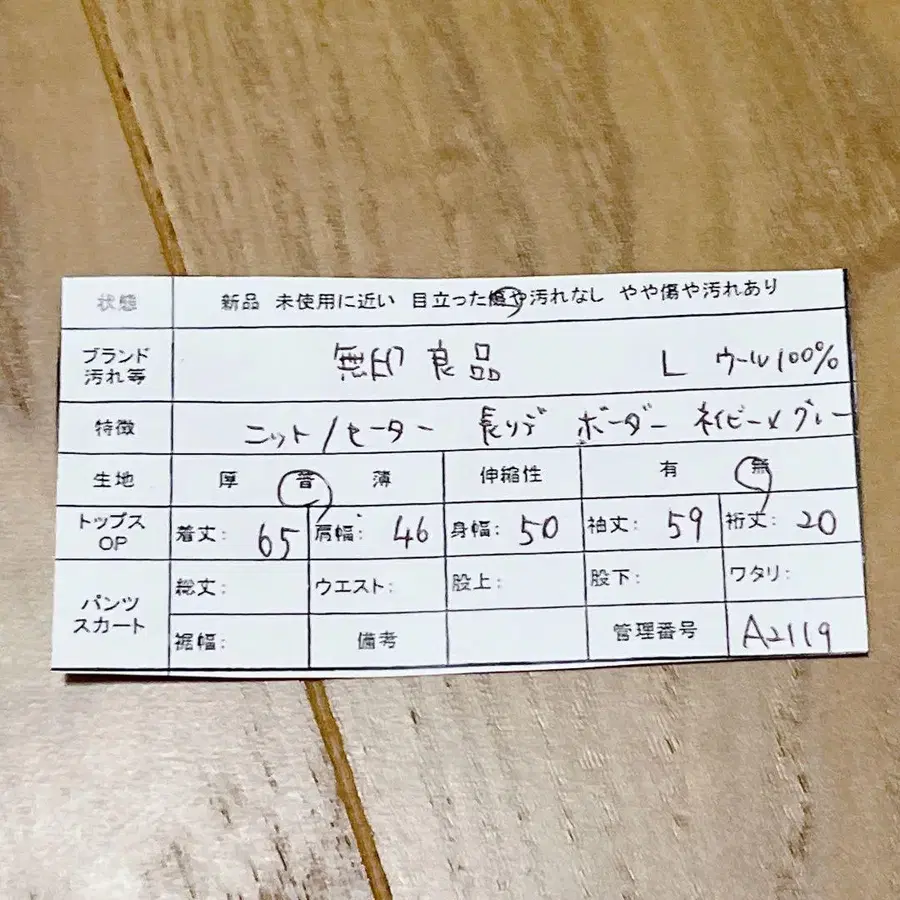 状態 新品 未使用に近い 目立った傷や汚れなし やや傷や汚れあり
ブランド 汚れ等 無印良品 L ウール100%
特徴 ニット/セーター 長ソデ ボーダー ネイビー×グレー
生地 厚 普 薄 伸縮性 有 無
トップス OP 着丈: 65 肩幅: 46 身幅: 50 袖丈: 59 裄丈: 20
パンツ スカート 総丈: ウエスト: 股上: 股下: ワタリ:
裾幅: 備考 管理番号 A2119